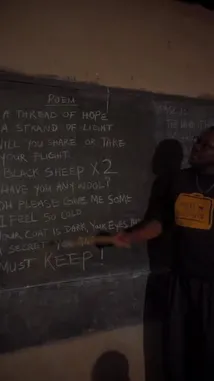 POEM
A THREAD OF HOPE
A STRAND OF LIGHT
WILL YOU SHARE OR TAKE
YOUR FLIGHT
BLACK SHEEP X2
HAVE YOU ANY WOOL?
OH PLEASE GIVE ME SOME
I FEEL SO COLD
YOUR COAT IS DARK YOUR EYES
A SECRET YOU
MUST KEEP!